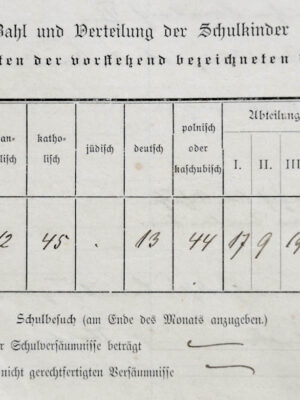 Zahl und Verteilung der Schulkinder
ten der vorstehend bezeichneten
an-
lisch
katho-
lisch
jüdisch
deutsch
polnisch
oder
kaschubisch
Abteilung
I. II. III
2 45 . 13 44 17 9 19
Schulbesuch (am Ende des Monats anzugeben.)
r Schulversäumnisse beträgt
nicht gerechtfertigten Versäumnisse